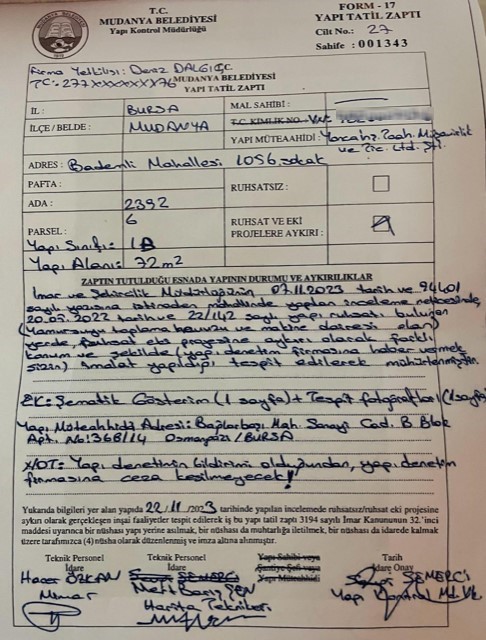 T.C.
MUDANYA BELEDİYESİ
Yapı Kontrol Müdürlüğü
FORM - 17
YAPI TATİL ZAPTI
Cilt No.: 27
Sahife : 001343
Firma Yetkilisi: Deniz DALGIÇ
T.C.
TC: 277XXXXXXXX76
MUDANYA BELEDİYESİ
YAPI TATİL ZAPTI
İL : BURSA
MAL SAHİBİ :
İLÇE/BELDE : MUDANYA
T.C KİMLİK NO
YAPI MÜTEAHİDİ :
ve Tic. Ltd. Şti.
ADRES: Bademli Mahallesi 1056 sokak
PAFTA :
RUHSATSIZ :
ADA : 2392
PARSEL : 6
RUHSAT VE EKİ PROJELERE AYKIRI :
Yapı Sınıfı: 1A
Yapı Alanı: 72 m2
ZAPTIN TUTULDUĞU ESNADA YAPININ DURUMU VE AYKIRILIKLAR
İmar ve Şehircilik Müdürlüğünün 07.11.2023 tarih ve 94401
sayılı yazısına istinaden mahallinde yapılan inceleme neticesinde,
20.05.2022 tarih ve 22/142 sayılı yapı ruhsatı bulunan
(Yağmursuyu toplama havuzu ve makine dairesi olan)
yerde, ruhsat eki projesine aykırı olarak farklı
konum ve şekilde (yapı denetim firmasına haber vermek
sizin) imalat yapıldığı tespit edilerek mühürlenmiştir.
EK: Şematik Gösterim (1 sayfa) + Tespit fotoğrafları (1 sayfa)
Yapı Müteahhidi Adresi: Bağlarbaşı Mah. Sanayi Cad. B Blok
Apt. No: 368/14 Osmangazi/BURSA
NOT: Yapı denetimin bildirimi olduğundan, yapı denetim
firmasına ceza kesilmeyecek!
Yukarıda bilgileri yer alan yapıda 22/11/2023 tarihinde yapılan incelemede ruhsatsız/ruhsat eki projesine
aykırı olarak gerçekleşen inşai faaliyetler tespit edilerek iş bu yapı tatil zaptı 3194 sayılı İmar Kanununun 32.'inci
maddesi uyarınca bir nüshası yapı yerine asılmak, bir nüshası da muhtarlığa iletilmek, bir nüshası da idarede kalmak
üzere tarafımızca (4) nüsha olarak düzenlenmiş ve imza altına alınmıştır.
Teknik Personel
İdare
Hacer ÖZKAN
Mimar
Teknik Personel
İdare
SEMERCİ
ŞEN
Harita Teknikeri
Yapı Sahibi veya
Şantiye Şefi veya
Yapı Müteahhidi
Tarih
İdare Onay
SEMERCİ
Yapı Kontrol Md. Vk.